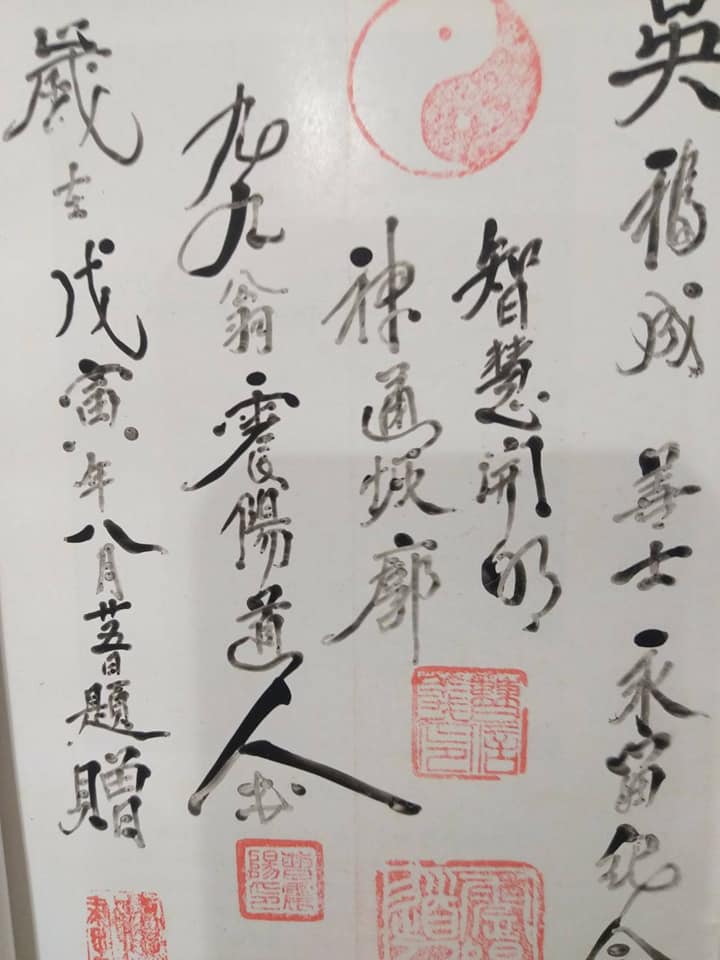 吳福成 善士 永留紀念
智慧開明
神通恢廓
九九翁 震陽道人書
歲士戊寅年八月廿五日題贈